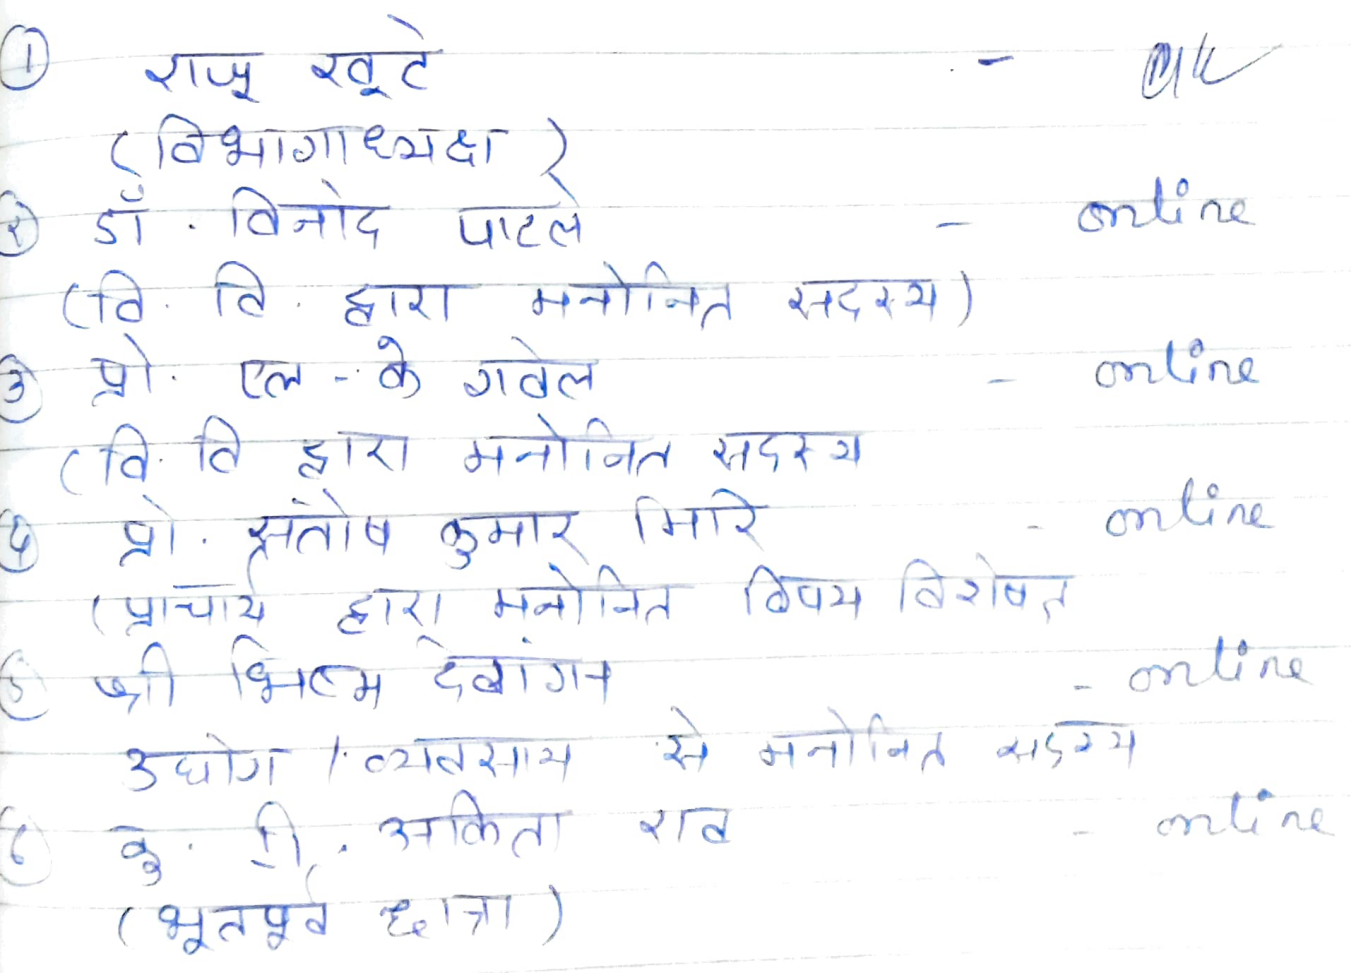 ① राजू खूटे -
(विभागाध्यक्ष)
② डॉ. विनोद पाटले - online
(वि. वि. द्वारा मनोनित सदस्य)
③ प्रो. एल - के गवेल - online
(वि. वि द्वारा मनोनित सदस्य
④ प्रो. संतोष कुमार मिरि - online
(प्राचार्य द्वारा मनोनित विषय विशेषज्ञ
⑤ श्री देवांगन - online
उद्योग / व्यवसाय से मनोनित सदस्य
⑥ कु. टी. अंकिता राव - online
(भूतपूर्व छात्रा)